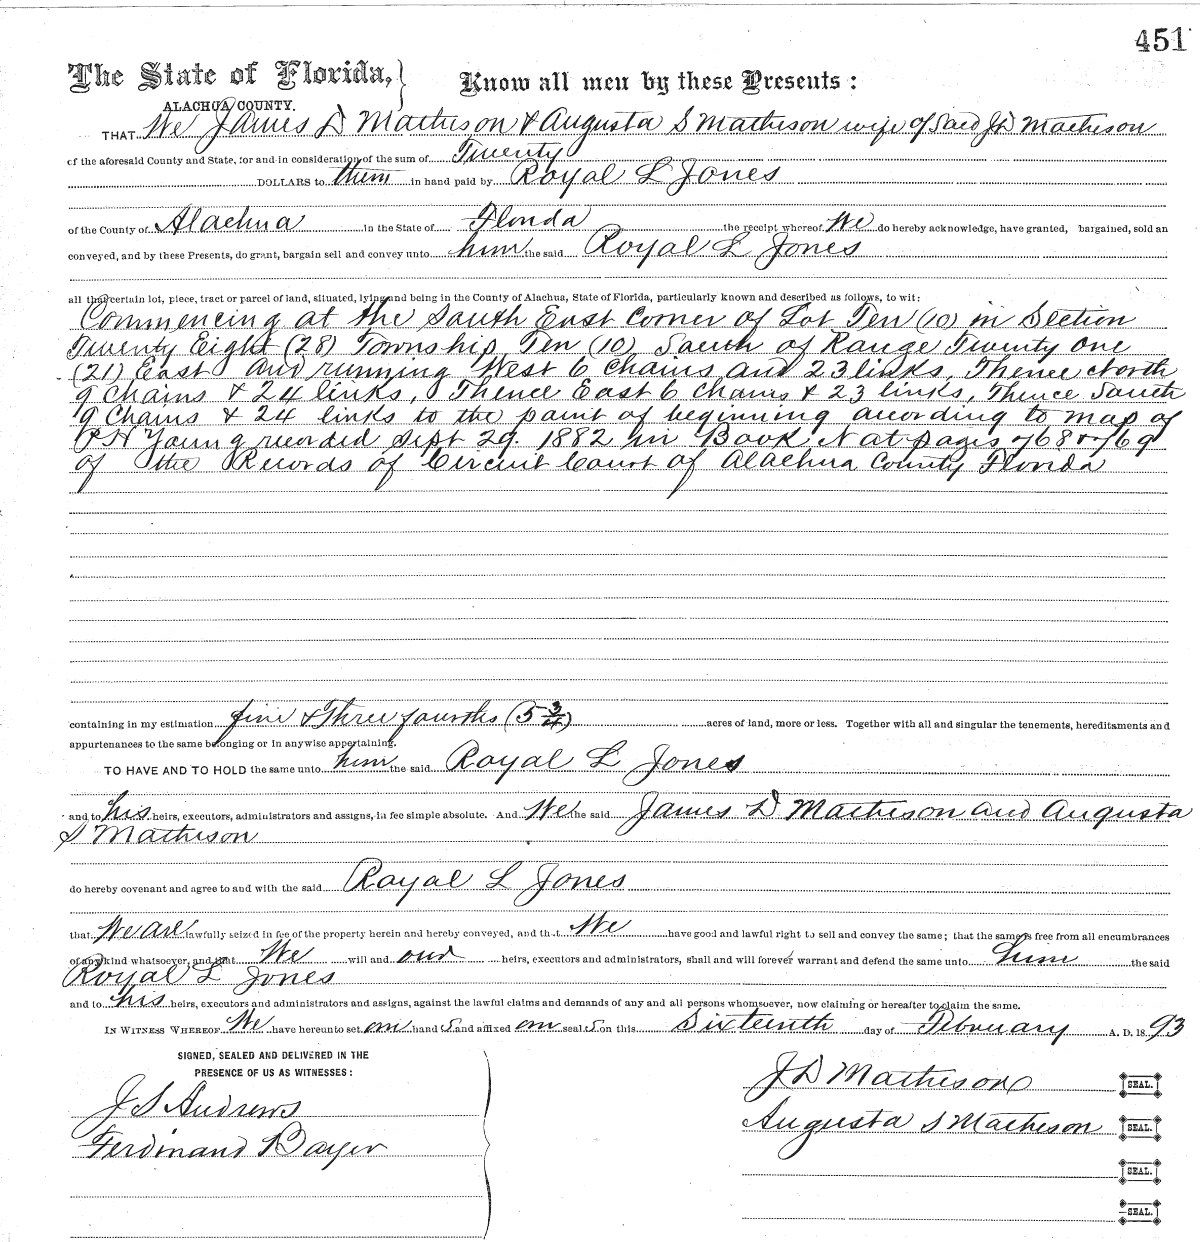 451
The State of Florida,
ALACHUA COUNTY.
Know all men by these Presents:
THAT We James D Matheson & Augusta S Matheson wife of Said JD Matheson
of the aforesaid County and State, for and in consideration of the sum of Twenty
DOLLARS to them in hand paid by Royal L Jones
of the County of Alachua in the State of Florida the receipt whereof We do hereby acknowledge, have granted, bargained, sold an
conveyed, and by these Presents, do grant, bargain sell and convey unto him the said Royal L Jones
all that certain lot, piece, tract or parcel of land, situated, lying and being in the County of Alachua, State of Florida, particularly known and described as follows, to wit:
Commencing at the South East Corner of Lot Ten (10) in Section
Twenty Eight (28) Township Ten (10) South of Range Twenty One
(21) East and running West 6 Chains and 23 links, Thence North
9 Chains & 24 links, Thence East 6 Chains & 23 links, Thence South
9 Chains & 24 links to the point of beginning according to map of
P H Young recorded Sept 29. 1882 in Book N at pages 768 & 769
of the Records of Circuit Court of Alachua County Florida
containing in my estimation five & Three fourths (5 3/4) acres of land, more or less. Together with all and singular the tenements, hereditaments and
appurtenances to the same belonging or in anywise appertaining.
TO HAVE AND TO HOLD the same unto him the said Royal L Jones
and to his heirs, executors, administrators and assigns, in fee simple absolute. And We he said James D Matheson and Augusta
S Matheson
do hereby covenant and agree to and with the said Royal L Jones
that We are lawfully seized in fee of the property herein and hereby conveyed, and that We have good and lawful right to sell and convey the same; that the same is free from all encumbrances
of any kind whatsoever, and that We will and our heirs, executors and administrators, shall and will forever warrant and defend the same unto him the said
Royal L Jones
and to his heirs, executors and administrators and assigns, against the lawful claims and demands of any and all persons whomsoever, now claiming or hereafter to claim the same.
IN WITNESS WHEREOF We have hereunto set our hand s and affixed our seal s on this Sixteenth day of February A. D. 18 93
SIGNED, SEALED AND DELIVERED IN THE
PRESENCE OF US AS WITNESSES:
J S Andrews
Ferdinand Bayer
J D Matheson SEAL.
Augusta S Matheson SEAL.
SEAL.
SEAL.